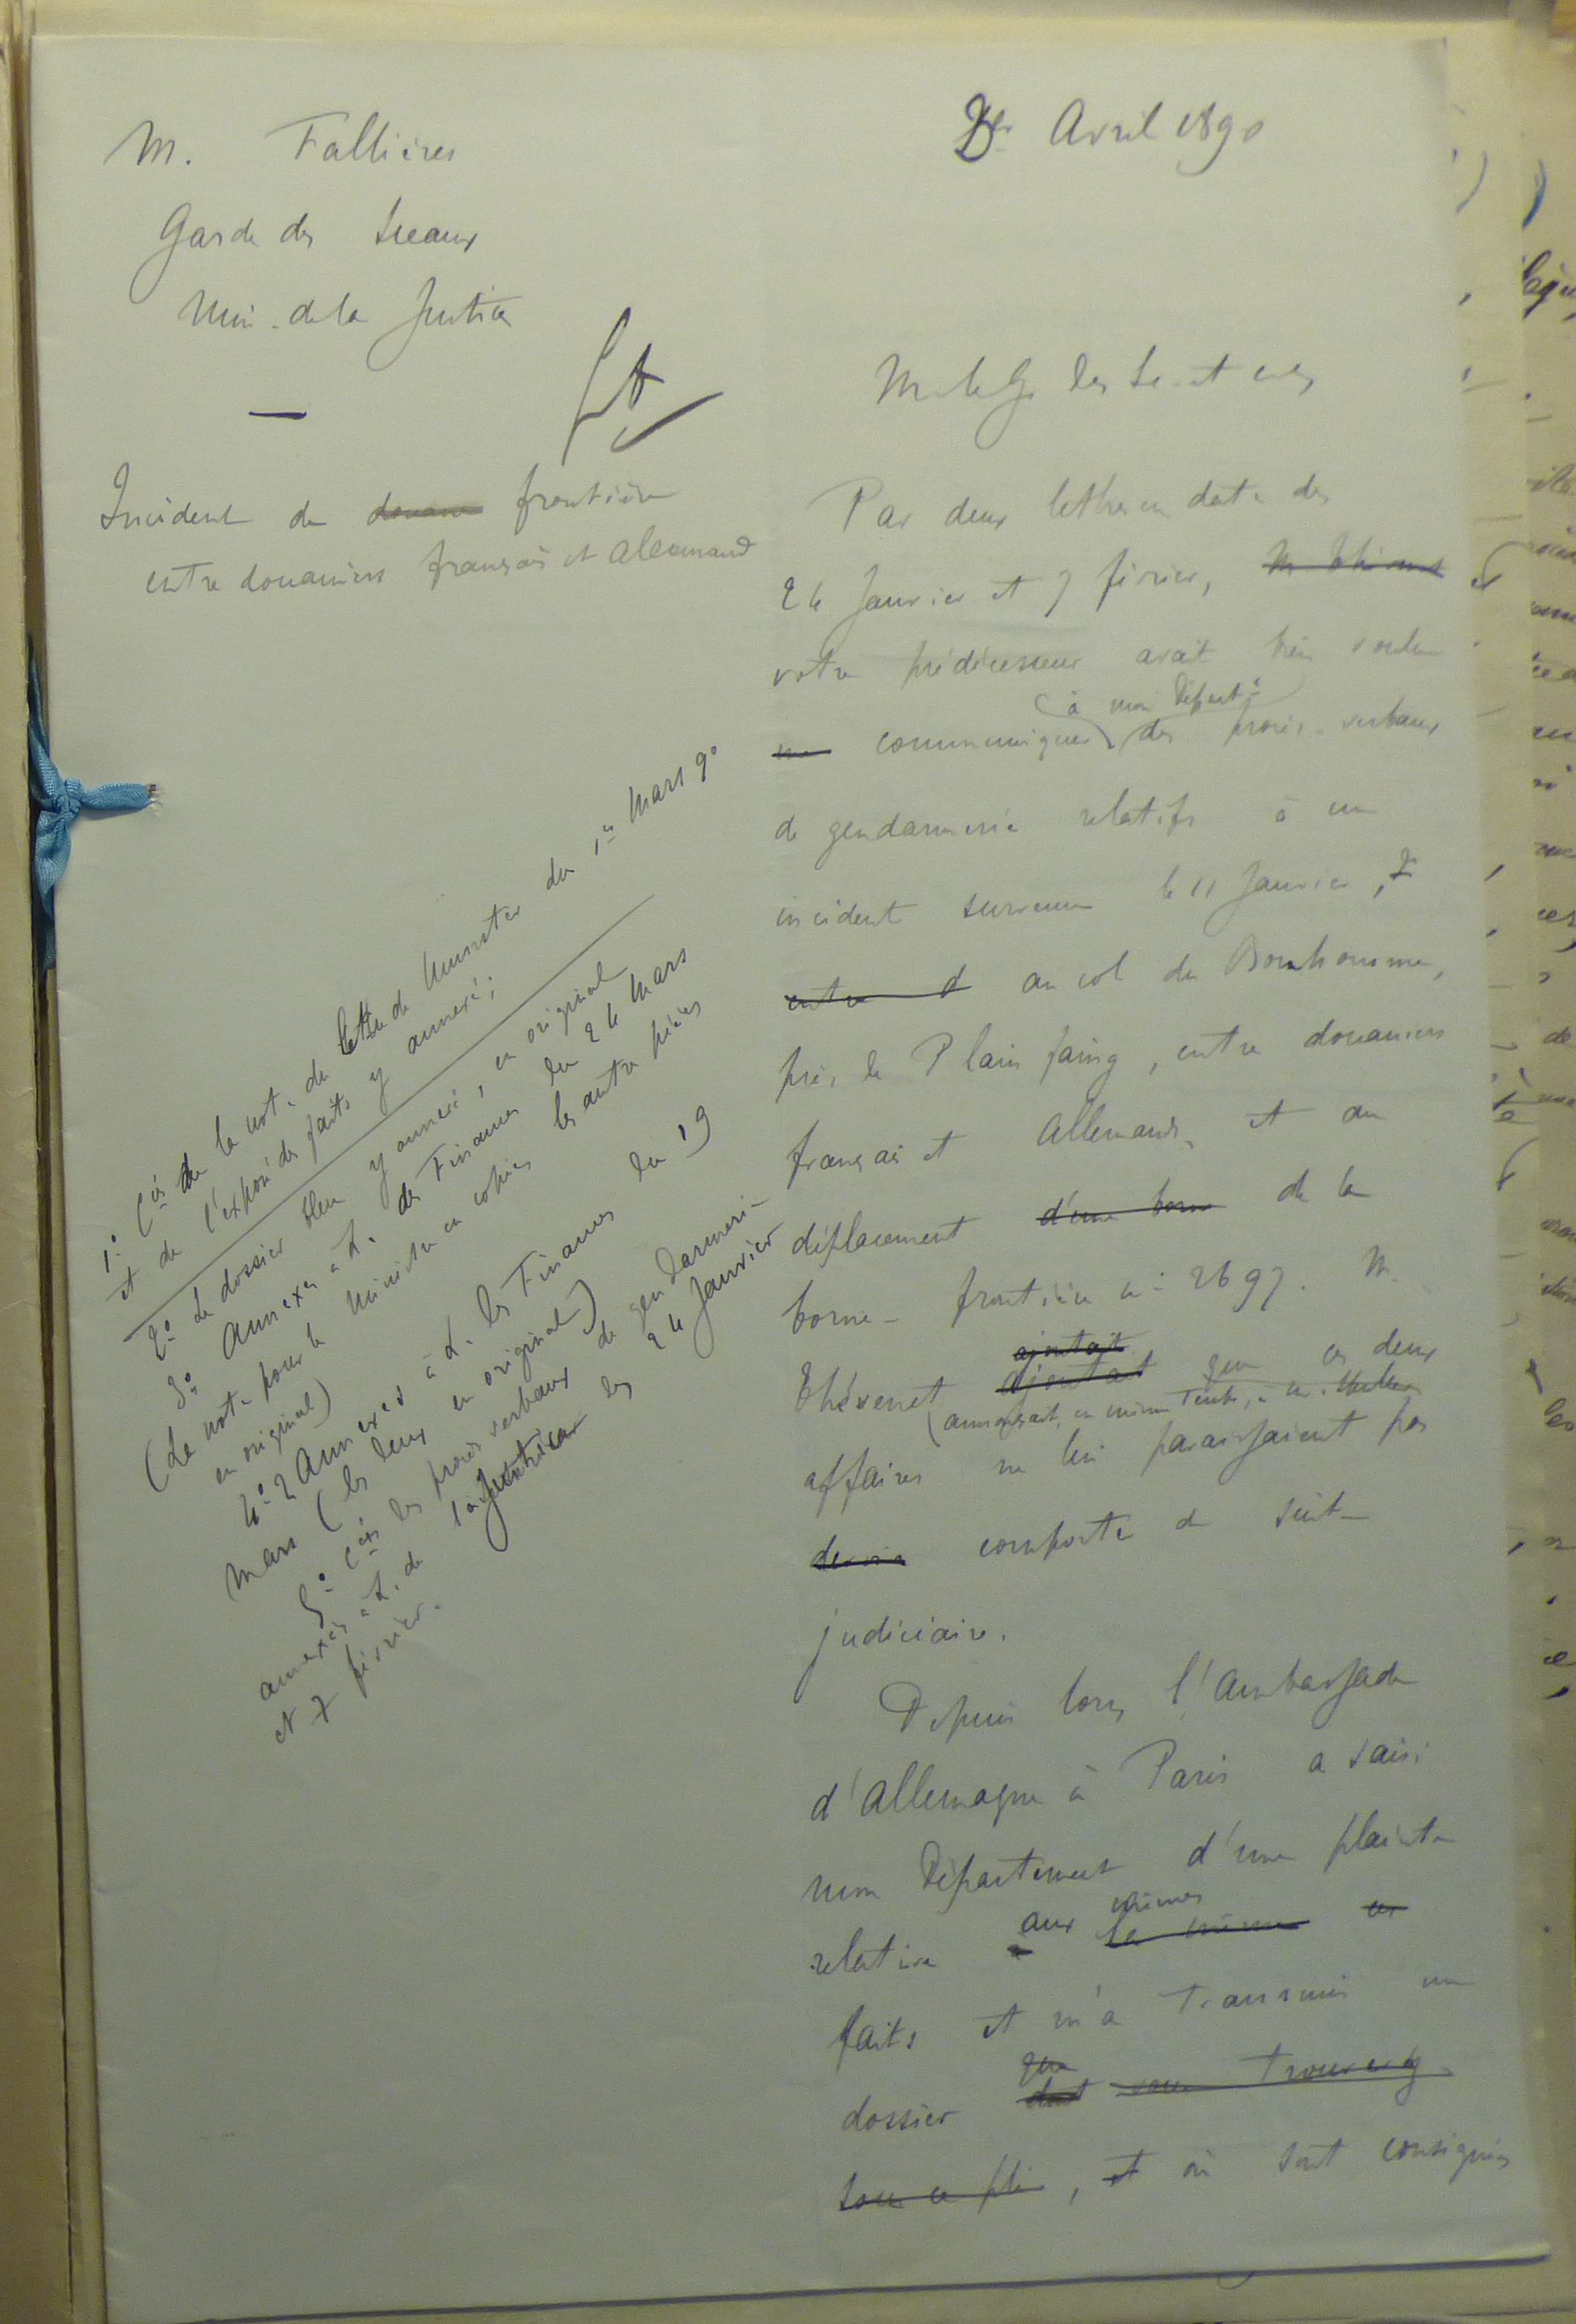 M. Fallières
Garde des Sceaux
Min. de la Justice
—
Incident de douane frontière
entre douaniers français et allemand
1º Cer de la note de l'Amb de Munster du 1er Mars 90
et de l'exposé des faits y annexé;
2º Le dossier bleu y annexé, en original
3º Annexes à L. des Finances du 24 Mars
(La note pour le Ministre en copie, les autres pièces
en original)
4º 2 Annexes à L. des Finances du 19
Mars (les deux en original)
5º Cer les procès verbaux de gendarmerie
annexés à L. de la Justice des 24 Janvier
et 7 février.
Avril 1890
M. le G. des Sc. et cher
Par deux lettres en date des
24 Janvier et 7 février, M. Thévenet
votre prédécesseur avait bien voulu
à mon Départt
me communiquer des procès-verbaux
de gendarmerie relatifs à un
incident survenu le 11 Janvier,
entre d au col du Bonhomme,
près de Plainfaing, entre douaniers
français et Allemands, et au
déplacement d'une borne de la
borne-frontière nº 2697. M.
ajoutait
Thévenet ajoutait que ces deux
(annonçait, en même temps, à M.
affaires ne lui paraissaient pas
devoir comporter de suite
judiciaire.
Depuis lors, l'Ambassade
d'Allemagne à Paris a saisi
mon Département d'une plainte
aux mêmes
relative à les mêmes ces
faits et m'a transmis un
que
dossier dont vous trouverez
sous ce pli, et où sont consignés